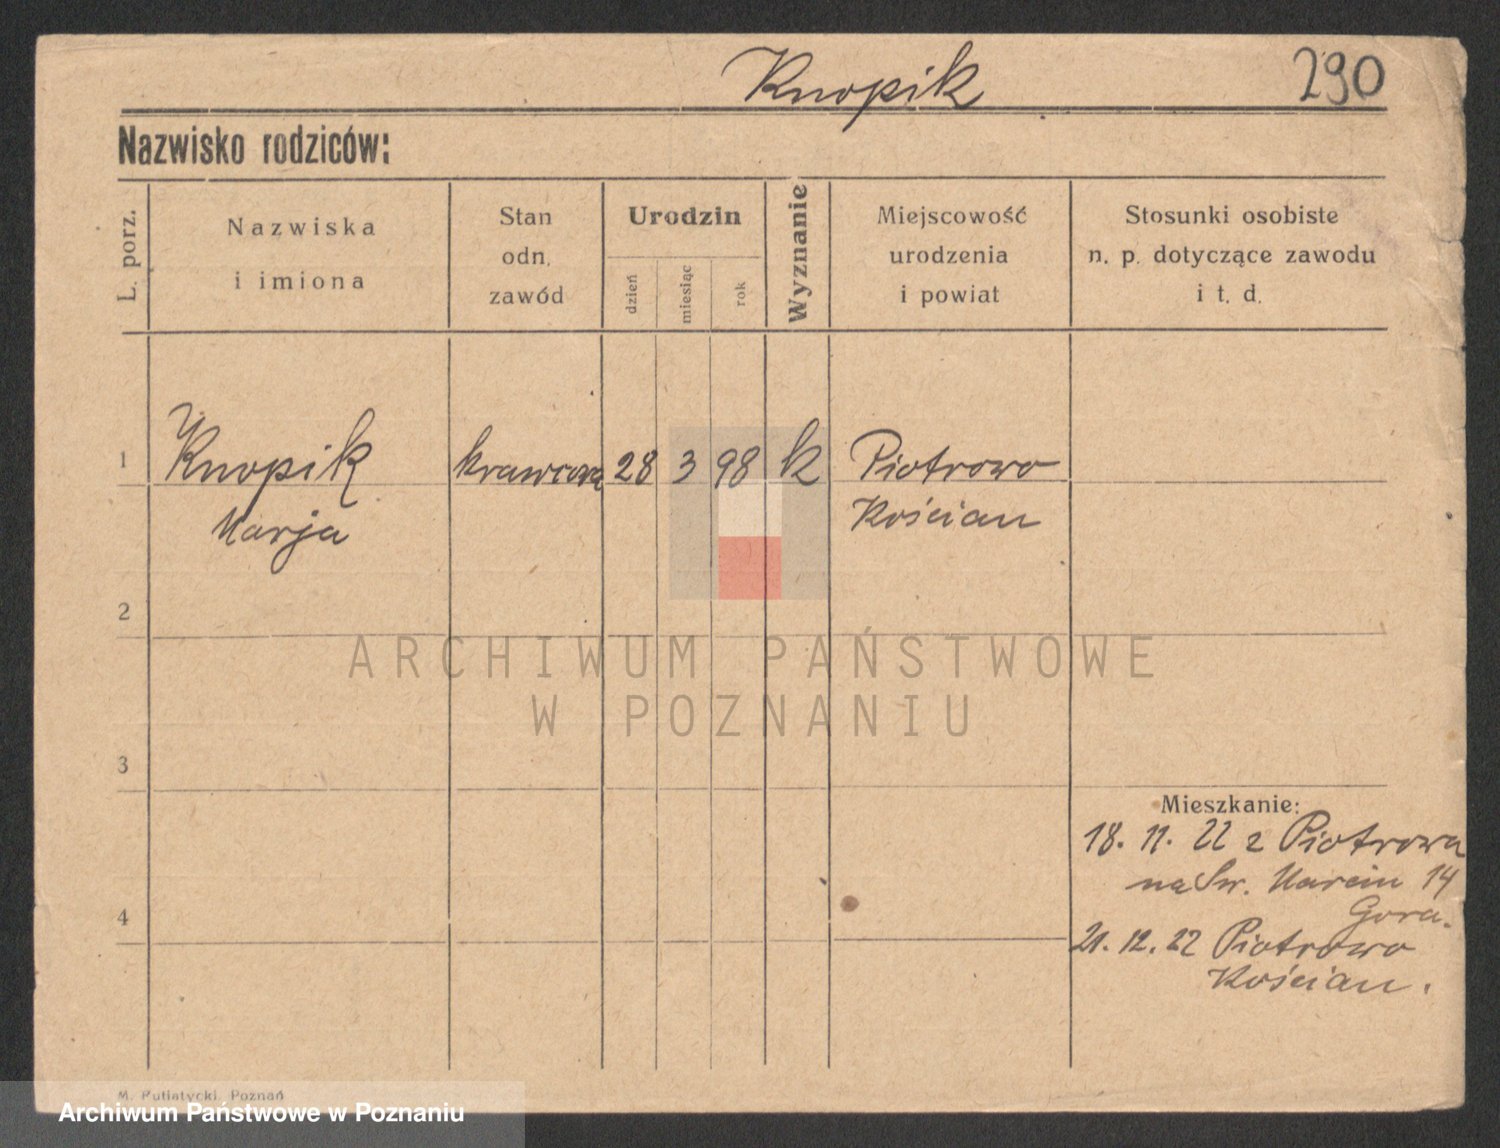 Knopik 290
Nazwisko rodziców:
L. porz.
Nazwiska
i imiona
Stan
odn.
zawód
Urodzin
dzień
miesiąc
rok
Wyznanie
Miejscowość
urodzenia
i powiat
Stosunki osobiste
n. p. dotyczące zawodu
i t. d.
1 Knopik krawcowa 28 3 98 k Piotrowo
Marja Kościan
2
ARCHIWUM PAŃSTWOWE
W POZNANIU
3
Mieszkanie:
18. 11. 22 z Piotrowa
na Św. Marcin 14
Gora.
4
21. 12. 22 Piotrowo
Kościan.
M. Putiatycki, Poznań
Archiwum Państwowe w Poznaniu